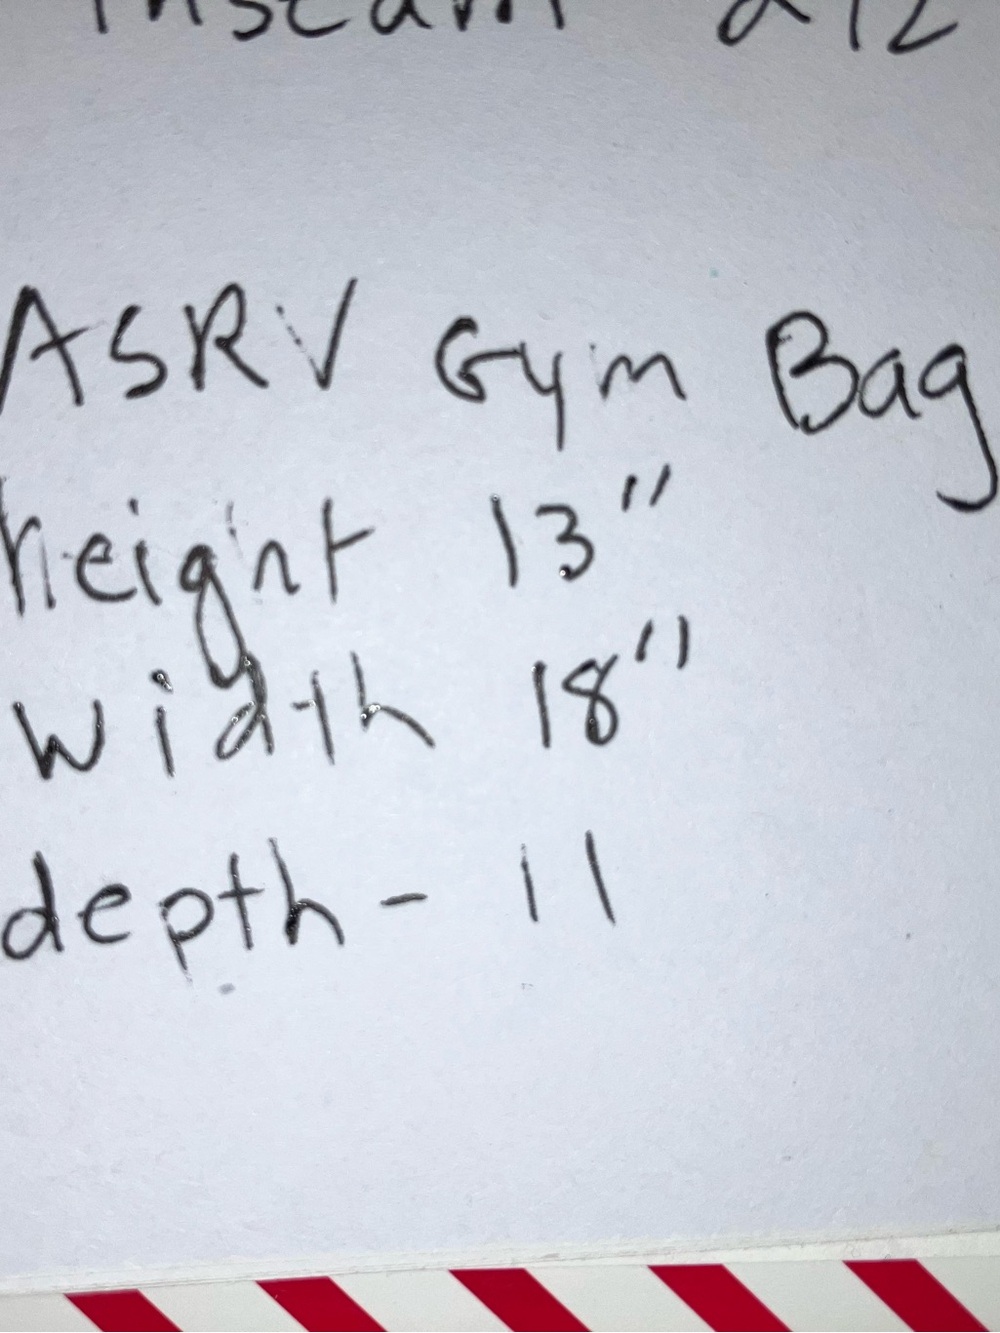 ASRV Gym Bag
height 13"
width 18"
depth - 11